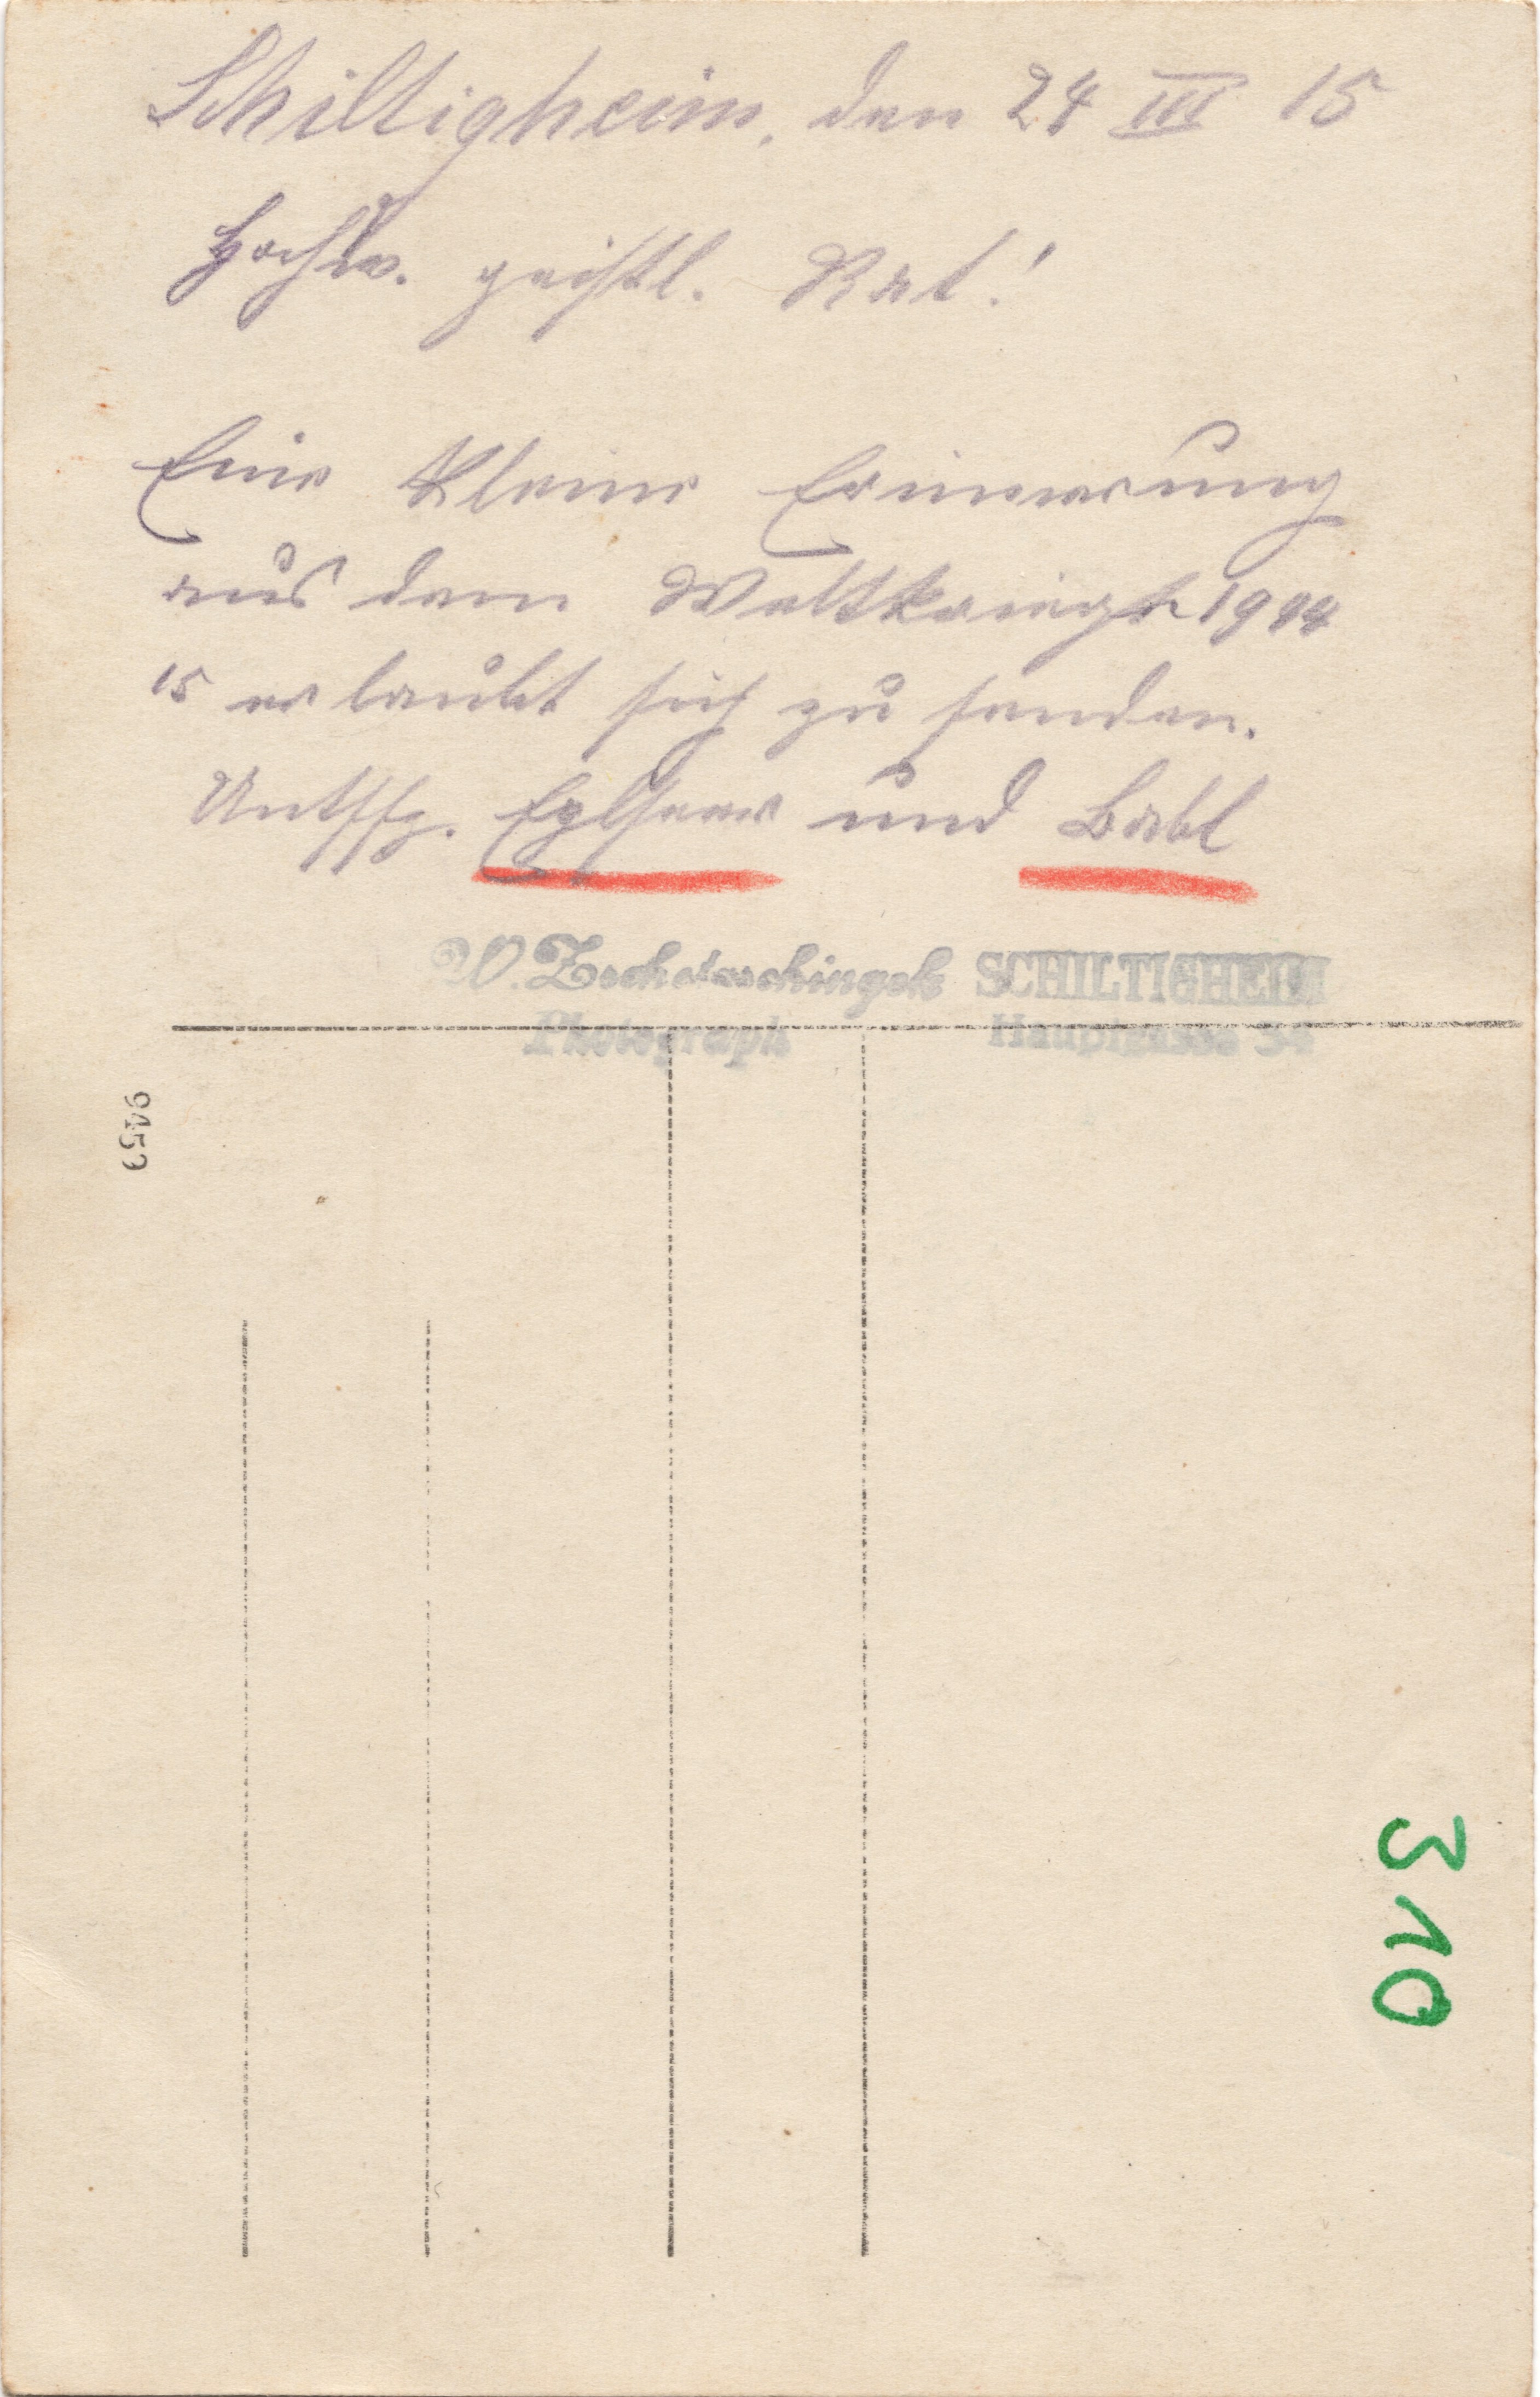 Schiltigheim, den 24 III 15
Hochw. geistl. Rat!
Eine kleine Erinnerung
aus dem Weltkriege 1914
15 erlaubt sich zu senden.
Untffz. und Babl
W. SCHILTIGHEIM
Photograph Hauptgasse 34
9453
310